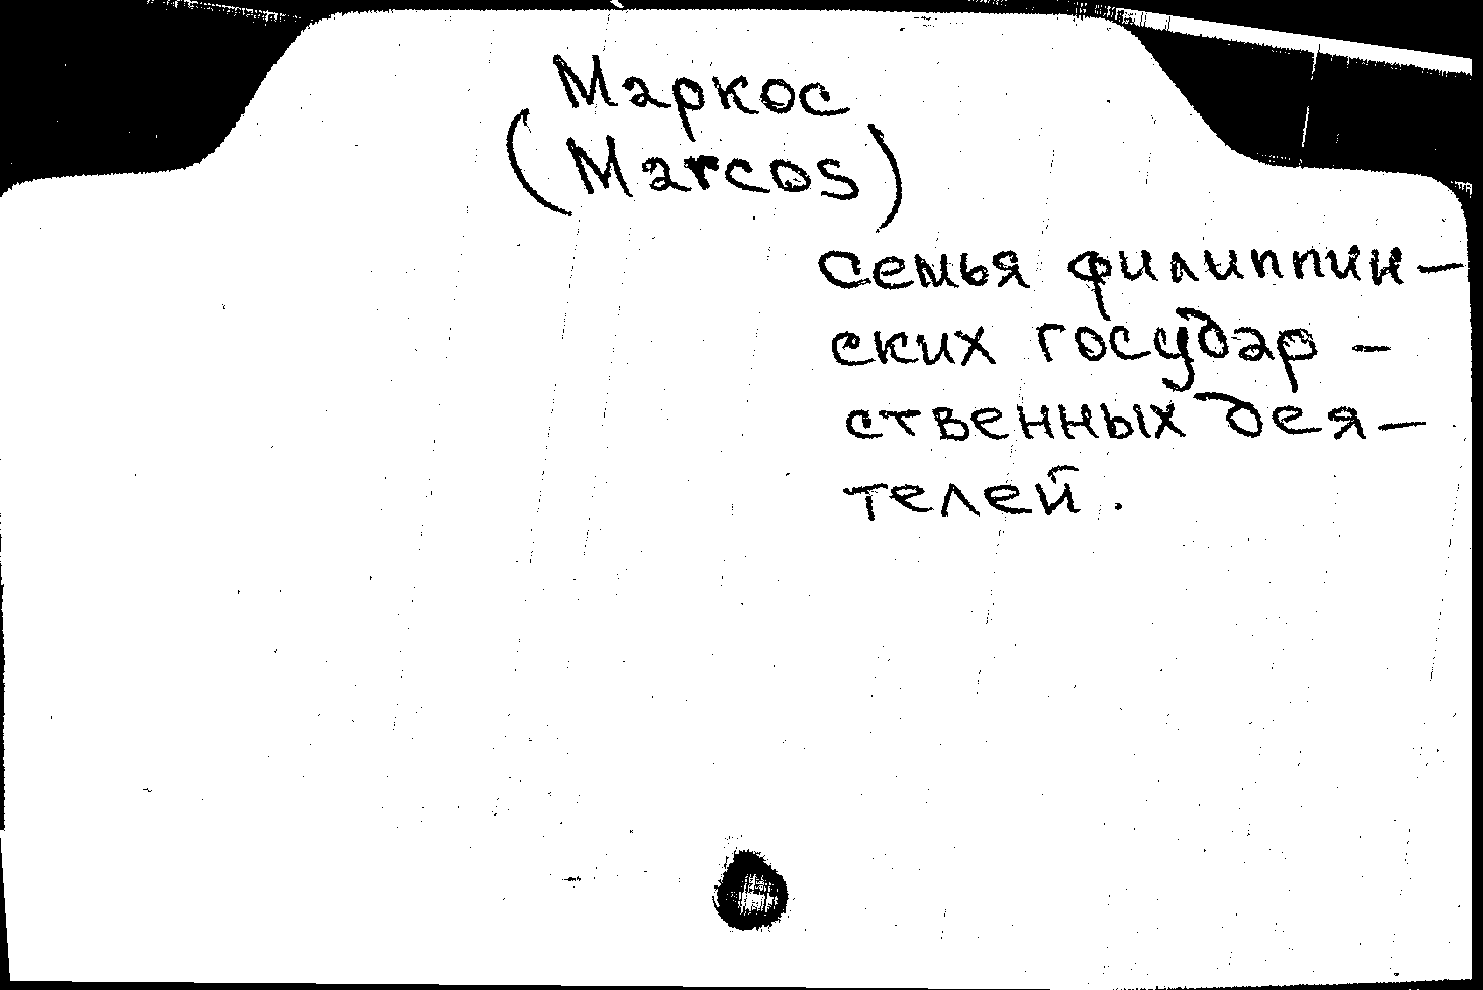 Маркос
(Marcos)
семья филиппин-
ских государ-
ственных дея-
телей.